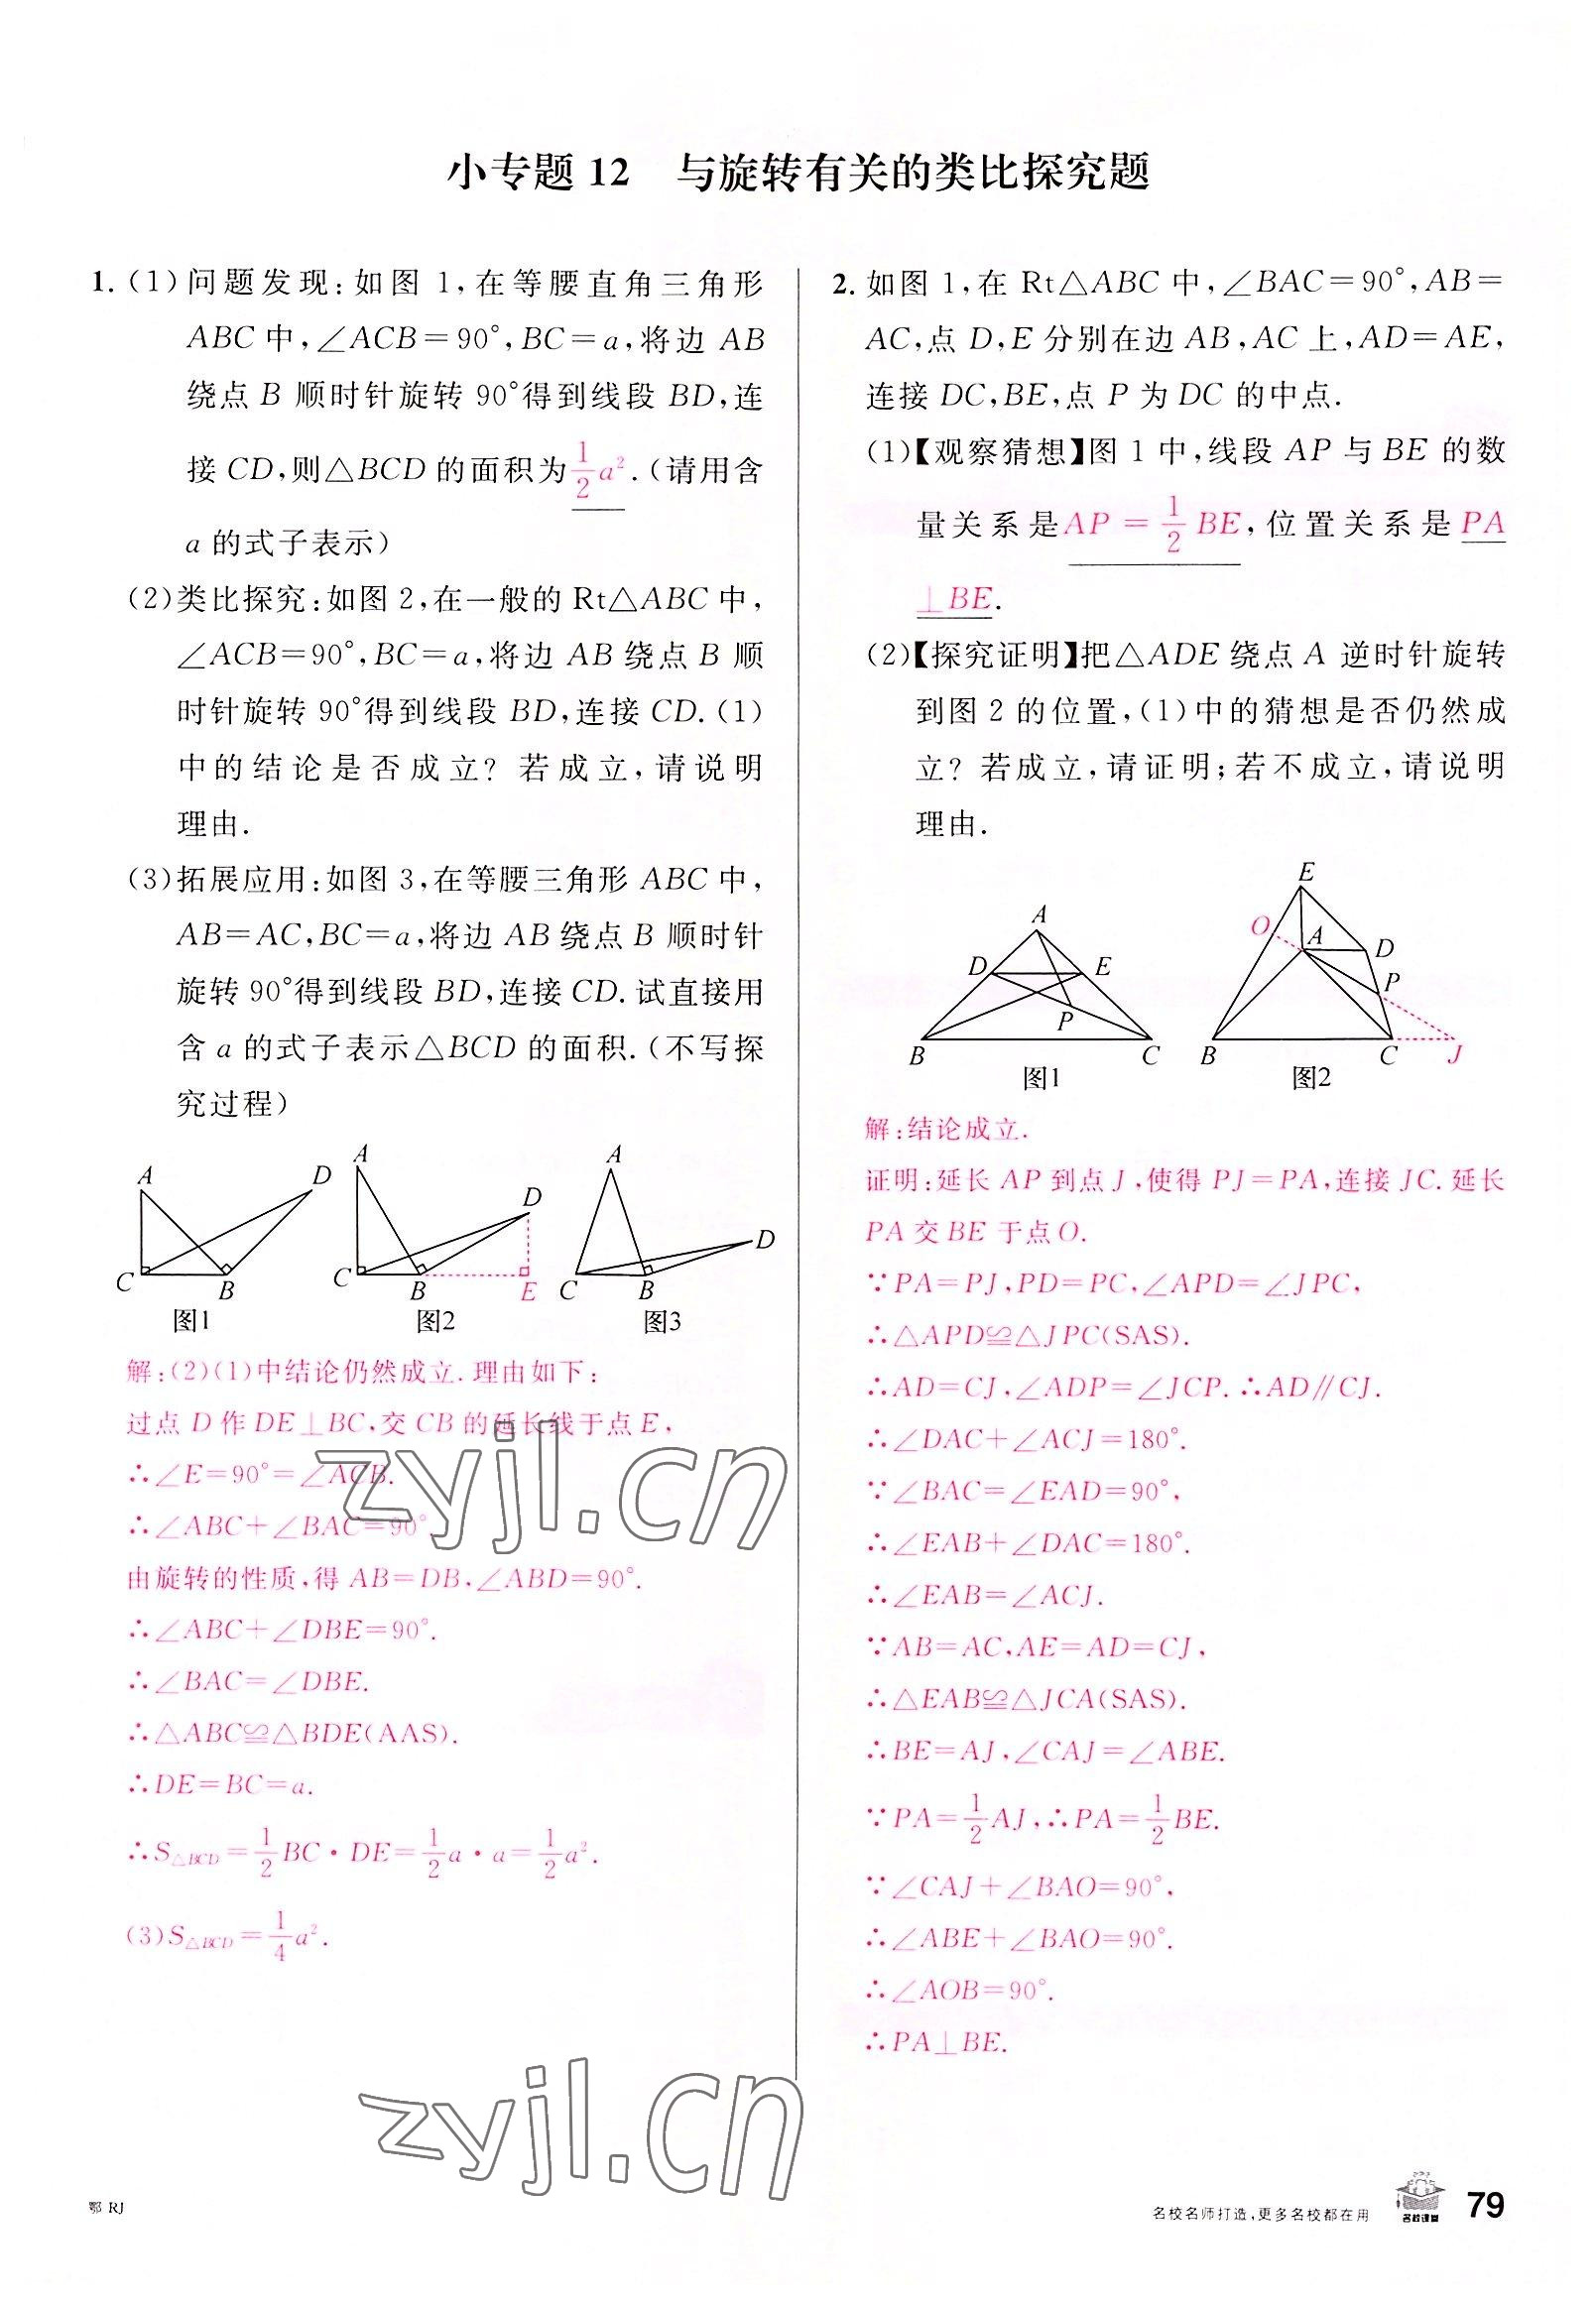 小专题 12　与旋转有关的类比探究题
1. (1)问题发现:如图 1,在等腰直角三角形
ABC 中,∠ACB=90°,BC=a,将边 AB
绕点 B 顺时针旋转 90°得到线段 BD,连
接 CD,则△BCD 的面积为 1/2 a².(请用含
a 的式子表示)
(2)类比探究:如图 2,在一般的 Rt△ABC 中,
∠ACB=90°,BC=a,将边 AB 绕点 B 顺
时针旋转 90°得到线段 BD,连接 CD.(1)
中的结论是否成立? 若成立,请说明
理由.
(3)拓展应用:如图 3,在等腰三角形 ABC 中,
AB=AC,BC=a,将边 AB 绕点 B 顺时针
旋转 90°得到线段 BD,连接 CD.试直接用
含 a 的式子表示△BCD 的面积.(不写探
究过程)
A D C B 图1
A D C B E 图2
A D C B 图3
解:(2)(1)中结论仍然成立.理由如下:
过点 D 作 DE⊥BC,交 CB 的延长线于点 E,
∴∠E=90°=∠ACB.
∴∠ABC+∠BAC=90°
由旋转的性质,得 AB=DB,∠ABD=90°.
∴∠ABC+∠DBE=90°.
∴∠BAC=∠DBE.
∴△ABC≌△BDE(AAS).
∴DE=BC=a.
∴S△BCD=1/2 BC·DE=1/2 a·a=1/2 a².
(3)S△BCD=1/4 a².
2. 如图 1,在 Rt△ABC 中,∠BAC=90°,AB=
AC,点 D,E 分别在边 AB,AC 上,AD=AE,
连接 DC,BE,点 P 为 DC 的中点.
(1)【观察猜想】图 1 中,线段 AP 与 BE 的数
量关系是 AP=1/2 BE,位置关系是 PA
⊥BE.
(2)【探究证明】把△ADE 绕点 A 逆时针旋转
到图 2 的位置,(1)中的猜想是否仍然成
立? 若成立,请证明;若不成立,请说明
理由.
A D E P B C 图1
E O A D P B C J 图2
解:结论成立.
证明:延长 AP 到点 J,使得 PJ=PA,连接 JC.延长
PA 交 BE 于点 O.
∵PA=PJ,PD=PC,∠APD=∠JPC,
∴△APD≌△JPC(SAS).
∴AD=CJ,∠ADP=∠JCP.∴AD∥CJ.
∴∠DAC+∠ACJ=180°.
∵∠BAC=∠EAD=90°,
∴∠EAB+∠DAC=180°.
∴∠EAB=∠ACJ.
∵AB=AC,AE=AD=CJ,
∴△EAB≌△JCA(SAS).
∴BE=AJ,∠CAJ=∠ABE.
∵PA=1/2 AJ,∴PA=1/2 BE.
∵∠CAJ+∠BAO=90°,
∴∠ABE+∠BAO=90°.
∴∠AOB=90°.
∴PA⊥BE.
zyjl.cn
zyjl.cn
鄂 RJ
名校名师打造,更多名校都在用
名校课堂
79